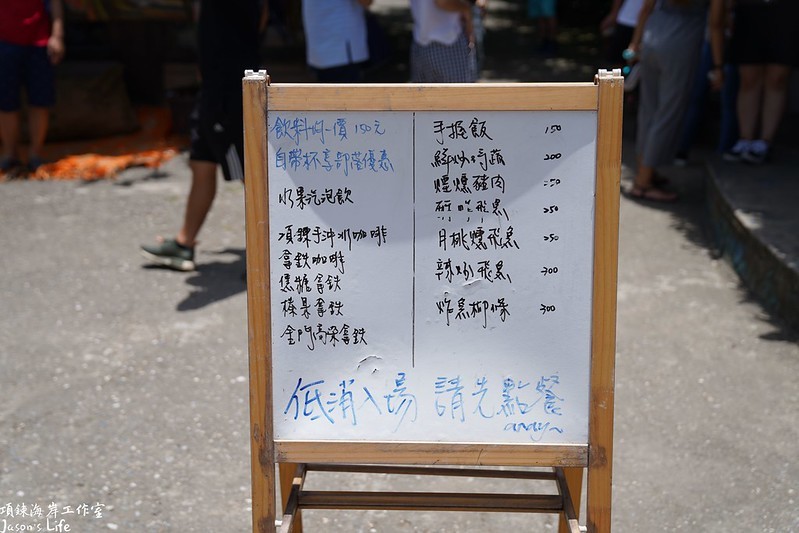 飲料均一價 150元
自帶杯享部落優惠
水果汽泡飲
項鍊手沖冰咖啡
拿鉄咖啡
焦糖拿鉄
榛果拿鉄
金門高粱拿鉄
手握飯 150
200
煙燻豬肉 250
飛魚 250
月桃燻飛魚 250
辣炒飛魚 300
炸魚柳條 300
低消入場 請先點餐
andy~
項鍊海岸工作室
Jason's Life